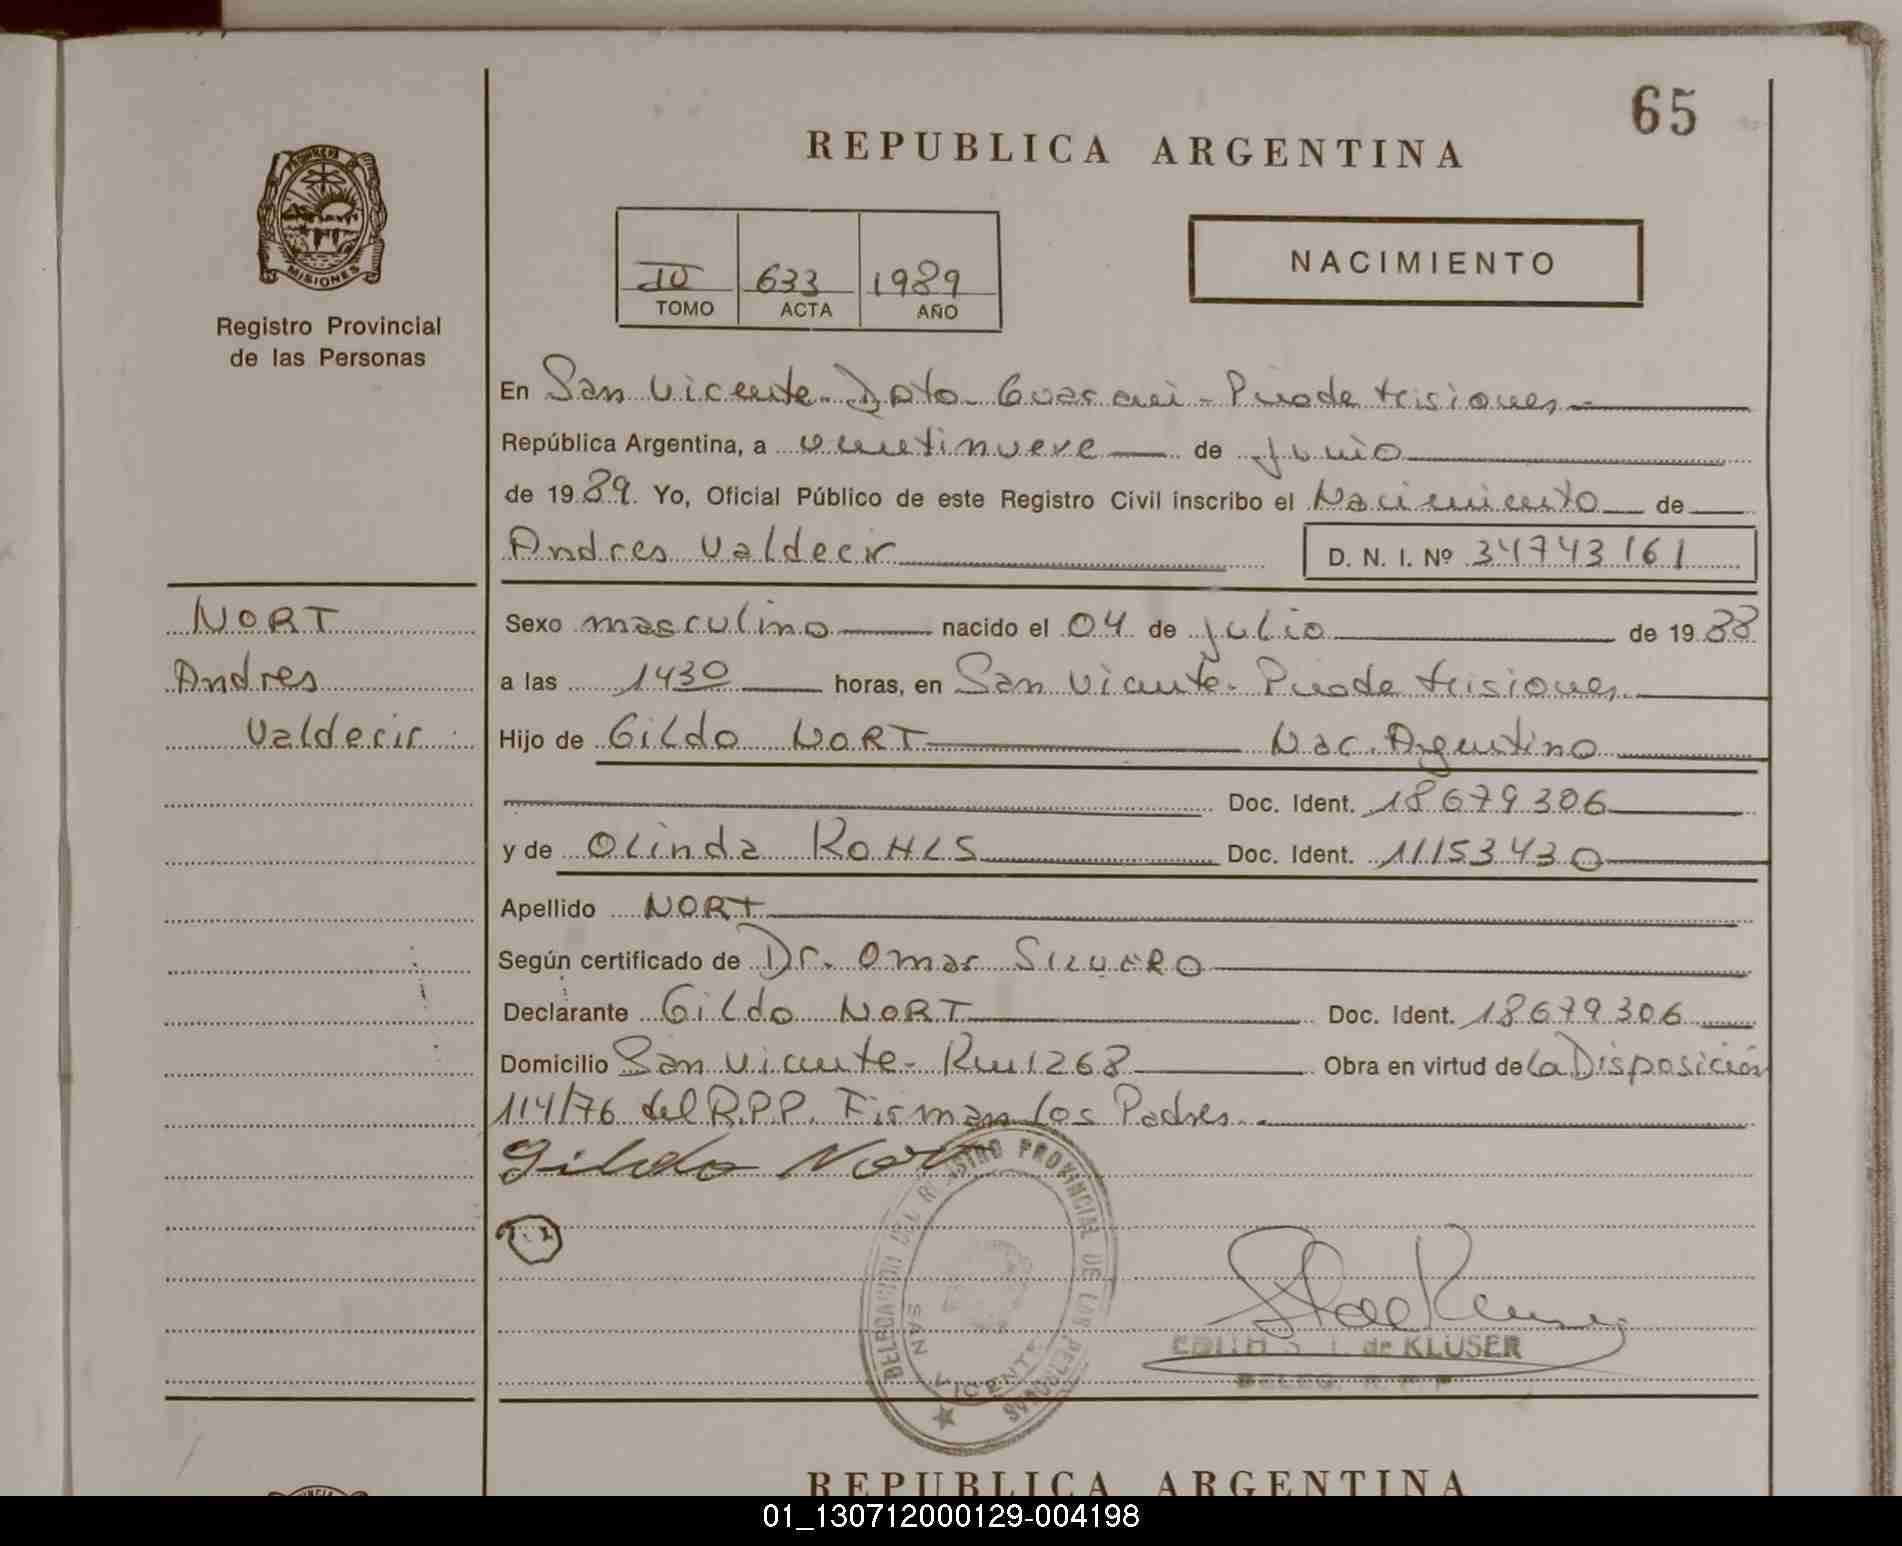 65
REPUBLICA ARGENTINA
PROVINCIA DE
MISIONES
Registro Provincial
de las Personas
IV 633 1989
TOMO ACTA AÑO
NACIMIENTO
En San Vicente - Dpto - Guarani - Pciade Misiones -
República Argentina, a veintinueve de junio
de 1989. Yo, Oficial Público de este Registro Civil inscribo el Nacimiento de
Andres Valdecir D. N. I. Nº 34743161
NORT
Andres
Valdecir
Sexo masculino nacido el 04 de julio de 1988
a las 1430 horas, en San Vicente - Pciade Misiones
Hijo de Gildo NORT Nac. Argentino
Doc. Ident. 18679306
y de Olinda ROHLS Doc. Ident. 11153430
Apellido NORT
Según certificado de Dr. Omar SILVERO
Declarante Gildo NORT Doc. Ident. 18679306
Domicilio San Vicente - Km 1268 Obra en virtud de la Disposición
114/76 del R.P.P. Firman los Padres.
Gildo Nort
DELEGACION DEL REGISTRO PROVINCIAL DE LAS PERSONAS
SAN VICENTE
EDITH S. de KLUSER
DELEG. R. P. P.
REPUBLICA ARGENTINA
01_130712000129-004198